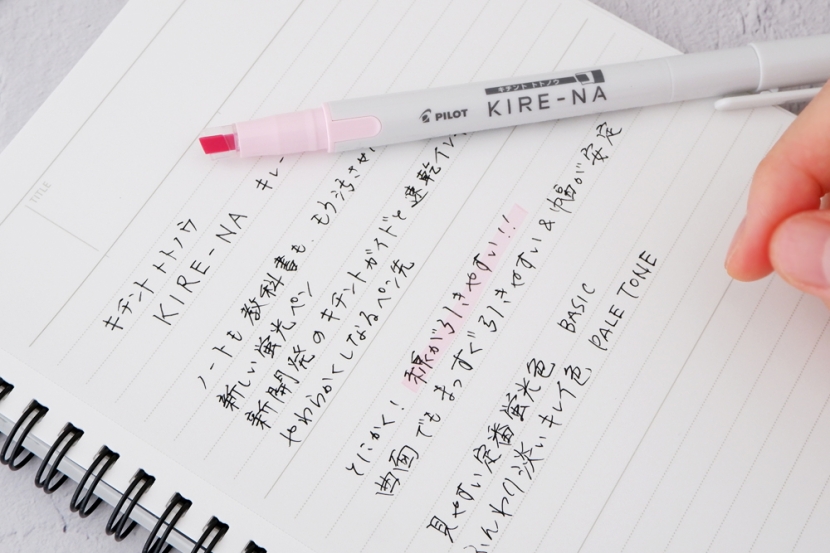 TITLE
キチント トトノウ
PILOT
KIRE-NA
キチント トトノウ
KIRE-NA キレー
ノートも教科書も、もう汚させ
新しい蛍光ペン
新開発のキチントガイドと速乾イン
やわらかくしなるペン先
とにかく! 線が引きやすい!!
曲面でもまっすぐ引きやすい&幅が安定
見やすい定番蛍光色 BASIC
ふんわり淡いキレイ色 PALE TONE